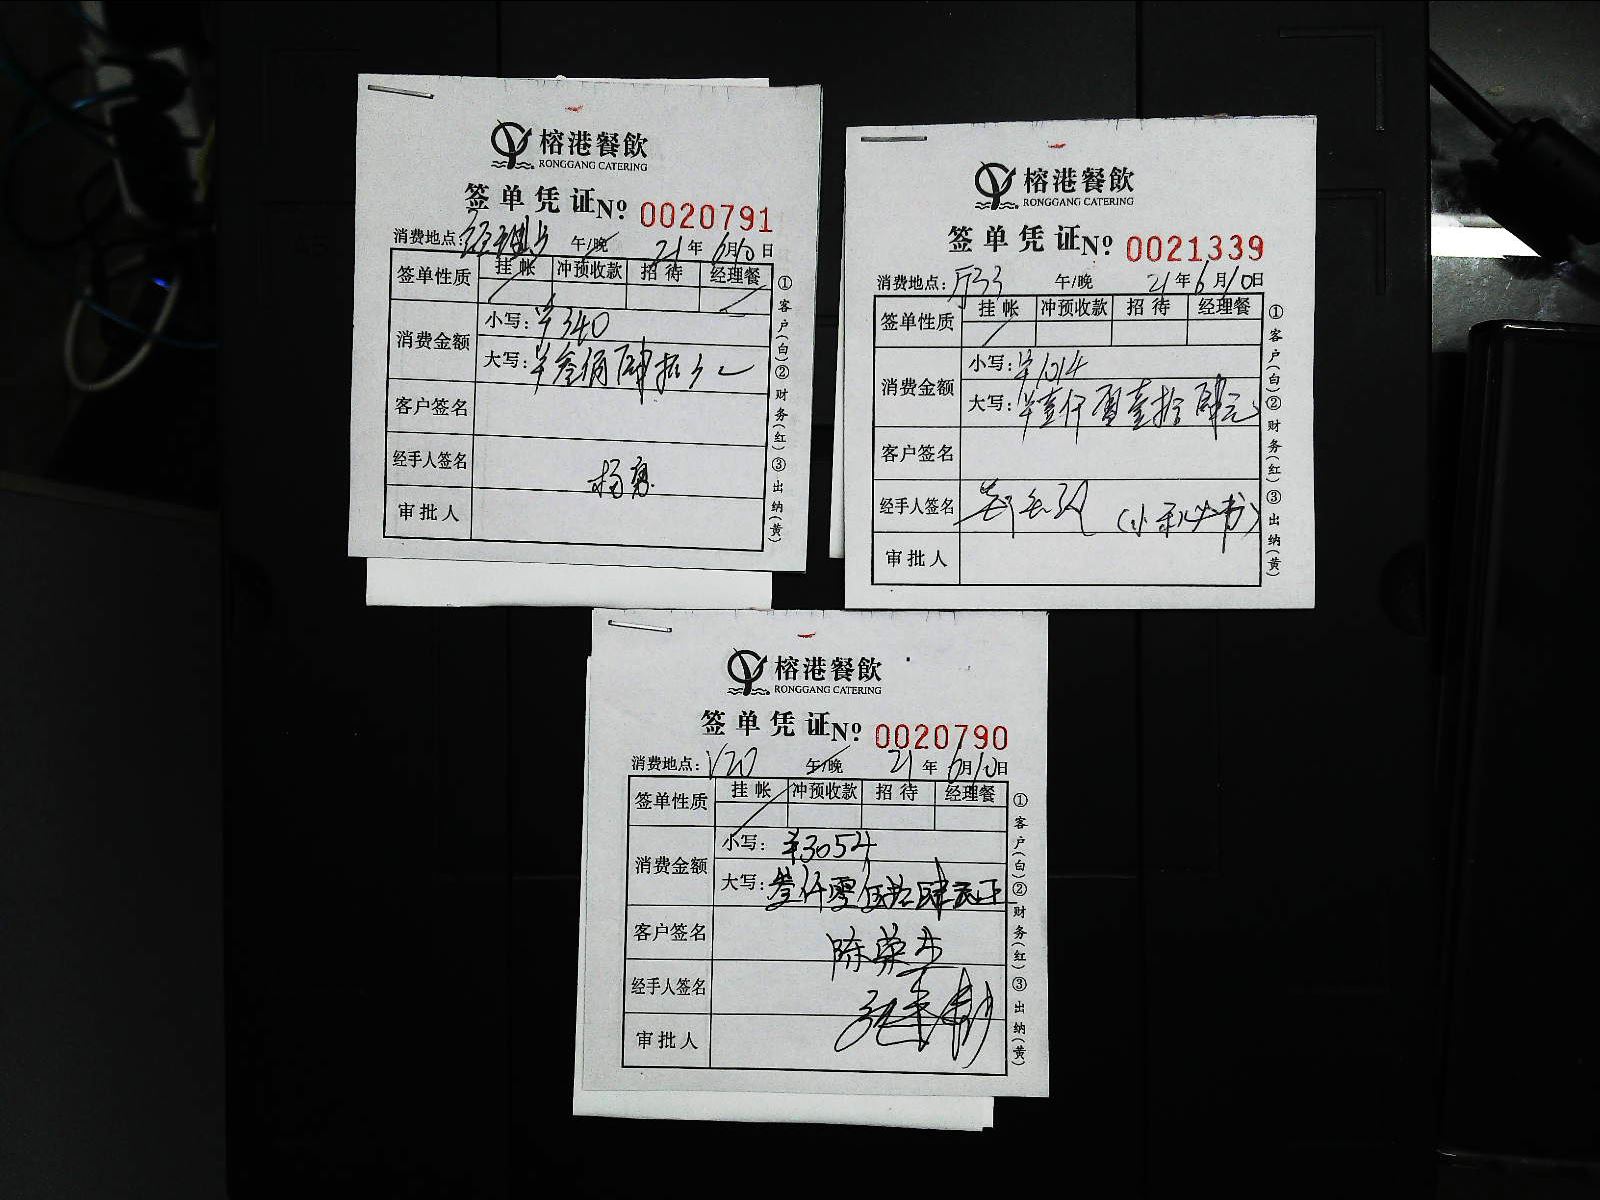 榕港餐飲
RONGGANG CATERING
签单凭证 Nº 0020791
消费地点: 午/晚 21年6月10日
签单性质 挂帐 冲预收款 招待 经理餐
消费金额 小写: ¥340
大写: ¥叁佰肆拾元
客户签名
经手人签名 杨勇
审批人
①客户(白)②财务(红)③出纳(黄)
榕港餐飲
RONGGANG CATERING
签单凭证 Nº 0021339
消费地点: 厅33 午/晚 21年6月10日
签单性质 挂帐 冲预收款 招待 经理餐
消费金额 小写: ¥1014
大写: ¥壹仟零壹拾肆元
客户签名
经手人签名 (小秘书)
审批人
①客户(白)②财务(红)③出纳(黄)
榕港餐飲
RONGGANG CATERING
签单凭证 Nº 0020790
消费地点: V20 午/晚 21年6月10日
签单性质 挂帐 冲预收款 招待 经理餐
消费金额 小写: ¥3054
大写: 叁仟零伍拾肆元正
客户签名 陈荣杰
经手人签名
审批人
①客户(白)②财务(红)③出纳(黄)